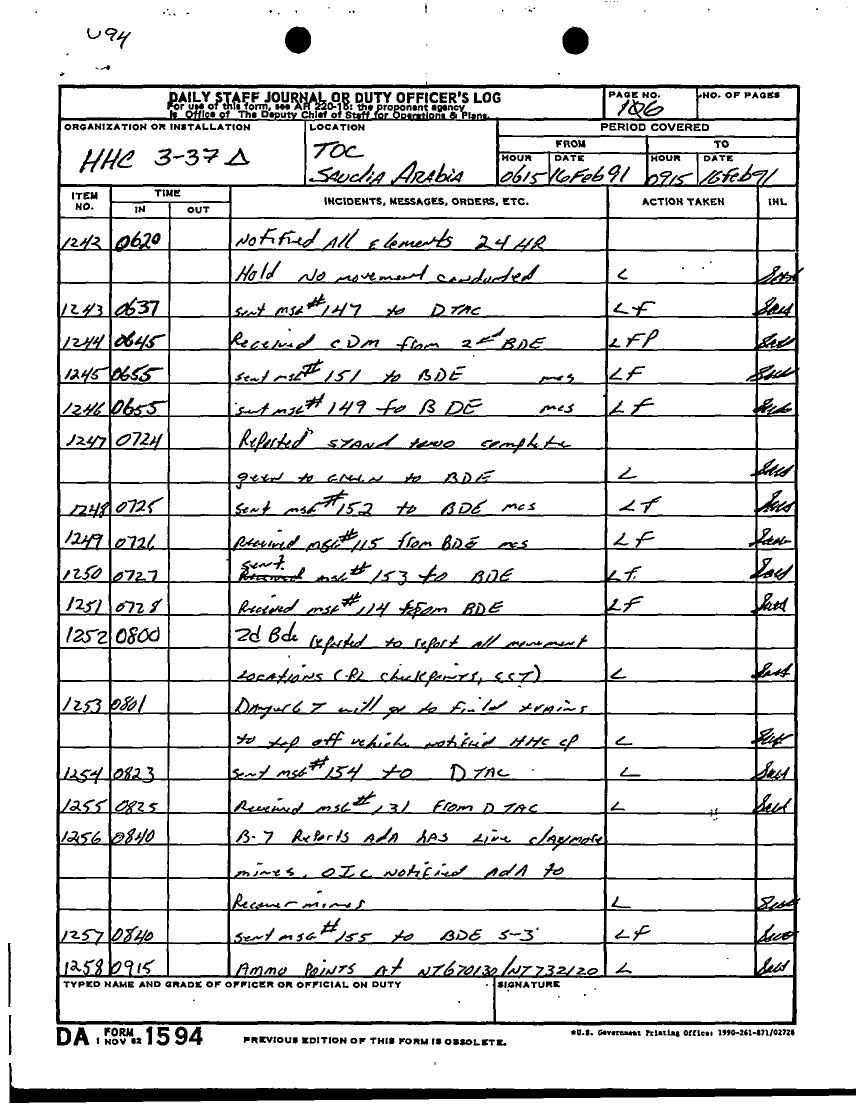 U94
DAILY STAFF JOURNAL OR DUTY OFFICER'S LOG
For use of this form, see AR 220-15; the proponent agency
is Office of The Deputy Chief of Staff for Operations & Plans.
PAGE NO.
106
NO. OF PAGES
ORGANIZATION OR INSTALLATION
HHC 3-37 Δ
LOCATION
TOC
Saudia Arabia
PERIOD COVERED
FROM TO
HOUR DATE HOUR DATE
0615 16Feb91 0915 16Feb91
ITEM NO. TIME IN OUT INCIDENTS, MESSAGES, ORDERS, ETC. ACTION TAKEN INL
1242 0620 Notified All Elements 24 HR
Hold No movement conducted L
1243 0637 sent msg# 147 to DTAC LF
1244 0645 Received CDM from 2nd BDE LFP
1245 0655 sent msg# 151 to BDE mcs LF
1246 0655 sent msg# 149 to BDE mcs LF
1247 0724 Reported STAND two complete
geen to GREEN to BDE L
1248 0725 sent msg #152 to BDE mcs LF
1249 0726 Received msg# 115 from BDE mcs LF
1250 0727 sent msg# 153 to BDE LF
1251 0728 Received msg# 114 from BDE LF
1252 0800 2d Bde reported to report all movement
Locations (PL Checkpoints, ) L
1253 0801 will go to Field trains
to top off vehicle notified HHC CP L
1254 0823 sent msg# 154 to DTAC L
1255 0825 Received msg# 131 From DTAC L
1256 0840 B-7 Reports ADA has Live claymore
mines. OIC Notified ADA to
Recover mines L
1257 0840 sent msg# 155 to BDE S-3 LF
1258 0915 Ammo Points At NT670130/NT732120 L
TYPED NAME AND GRADE OF OFFICER OR OFFICIAL ON DUTY
SIGNATURE
DA FORM 1 NOV 62 1594
PREVIOUS EDITION OF THIS FORM IS OBSOLETE.
*U.S. Government Printing Office: 1990-261-871/02728